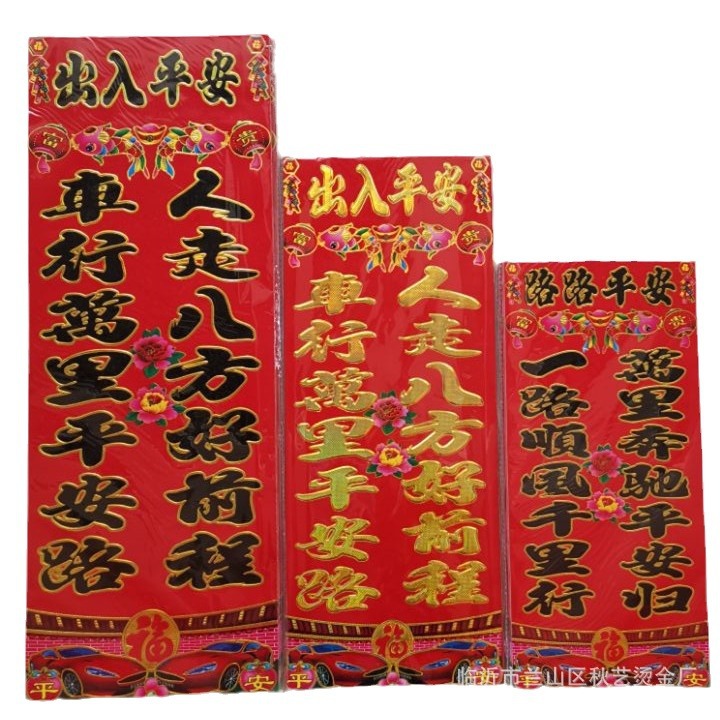 出入平安
富 贵
車行萬里平安路
人走八方好前程
福
平 安
出入平安
富 贵
車行萬里平安路
人走八方好前程
福
平
路路平安
富 贵
一路順風千里行
萬里奔驰平安归
福
平 安
临沂市兰山区秋艺烫金厂